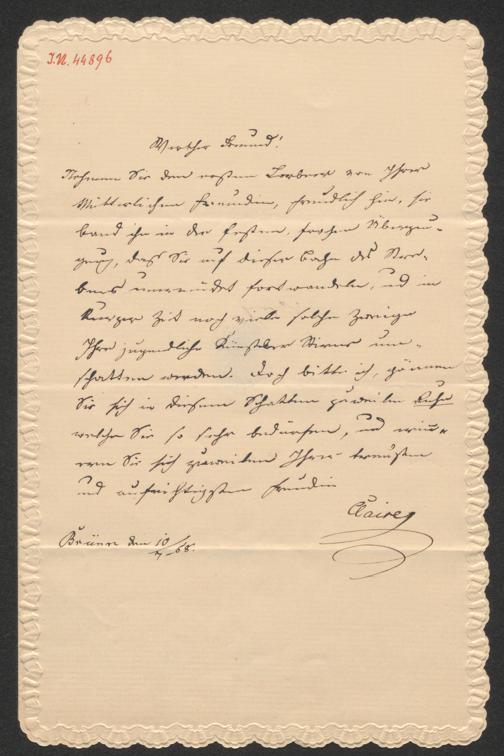 I.N. 44896
Werther Freund!
Nehmen Sie den ersten Lorbeer von Ihrer
Mütterlichen Freundin, freundlich hin, sie
band ihn in der festen, frohen Überzeu-
gung, daß Sie auf dieser Bahn des Stre-
bens unermüdet fortwandeln, und in
kurzer Zeit noch viele solche Zweige
Ihre jugendliche Künstler Stirne um-
schatten werden. Doch bitte ich, gönnen
Sie sich in diesem Schatten zuweilen Ruhe
welche Sie so sehr bedürfen, und erin-
ern Sie sich zuweilen Ihrer treusten
und aufrichtigsten Freundin
Claire
Brünn den 10/68.